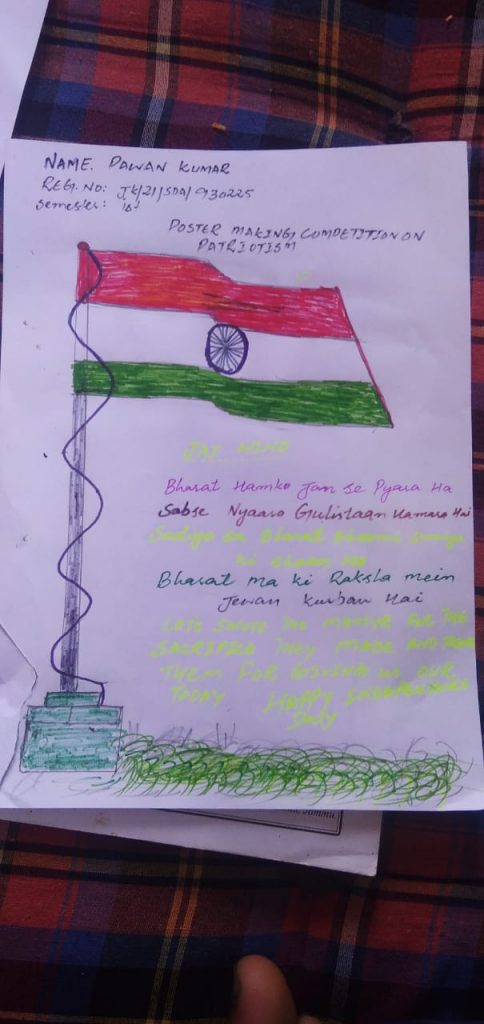 NAME. PAWAN KUMAR
REG. NO: JK/21/SDA/930225
Semester: 1st
POSTER MAKING COMPETITION ON
PATRIOTISM
JAI HIND
Bharat Hamko Jan se Pyara Ha
Sabse Nyaara Gulistaan Hamara Hai
Sadiyo sa Bharat Bhoomi
ki Shaan Ha
Bharat ma ki Raksha mein
Jewan kurban Hai
LETS SALUTE THE MARTYR FOR THE
SACRIFICE THEY MADE AND THANK
THEM FOR GIVING US OUR
TODAY HAPPY INDEPENDENCE
DAY
Jammu